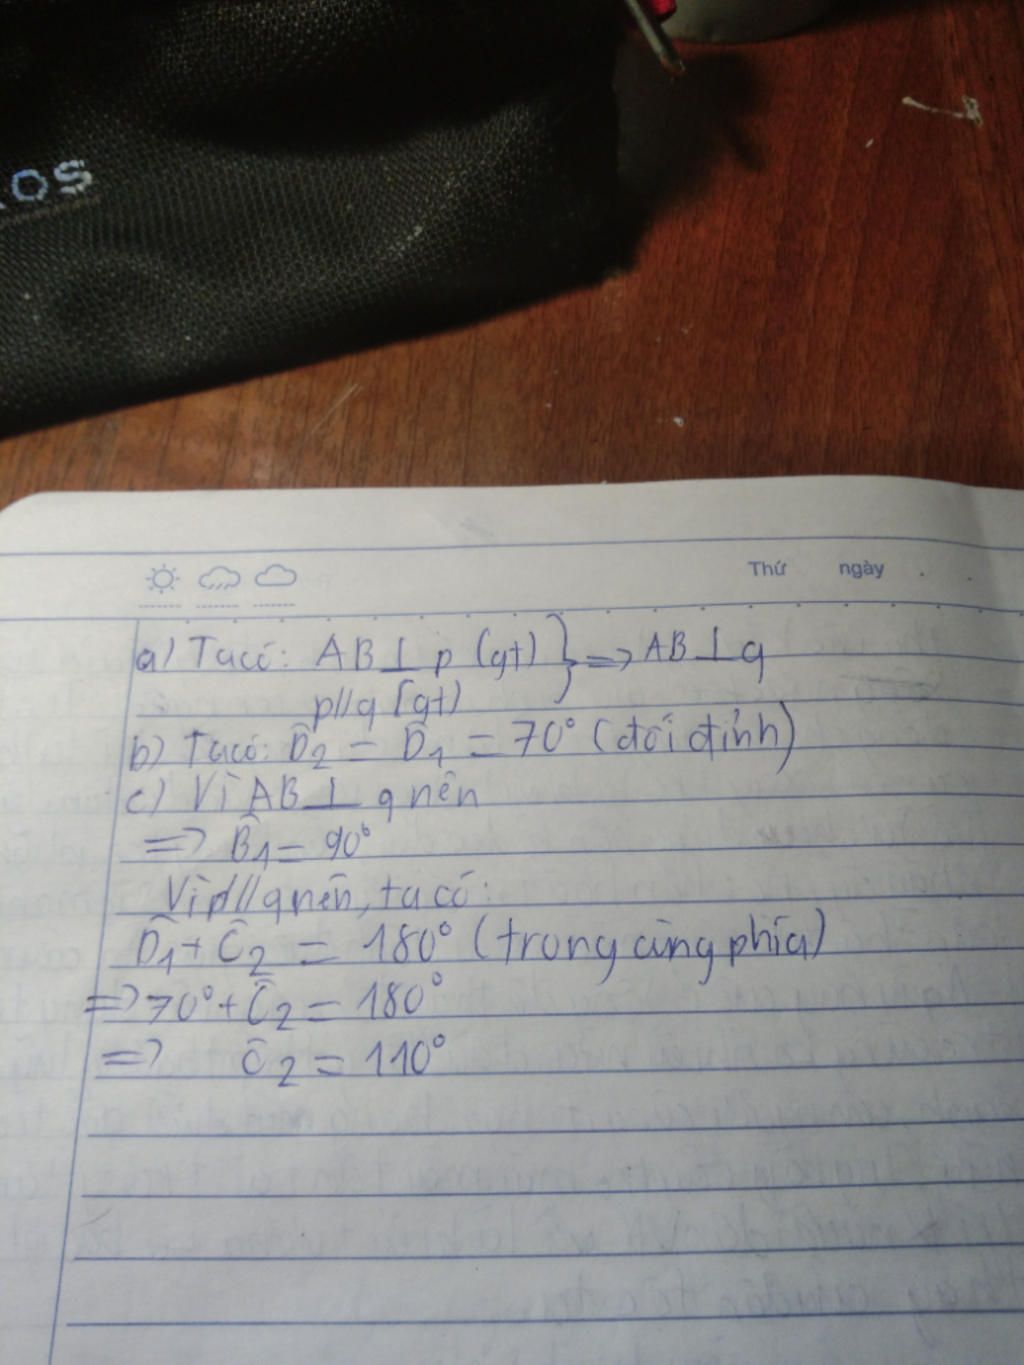 OS
Thứ ngày
a) Ta có: AB⊥p (gt) } => AB⊥q
p//q (gt)
b) Ta có: D̂₂ = D̂₁ = 70° (đối đỉnh)
c) Vì AB⊥q nên
=> B̂₁ = 90°
Vì p//q nên, ta có:
D̂₁ + Ĉ₂ = 180° (trong cùng phía)
=> 70° + Ĉ₂ = 180°
=> Ĉ₂ = 110°